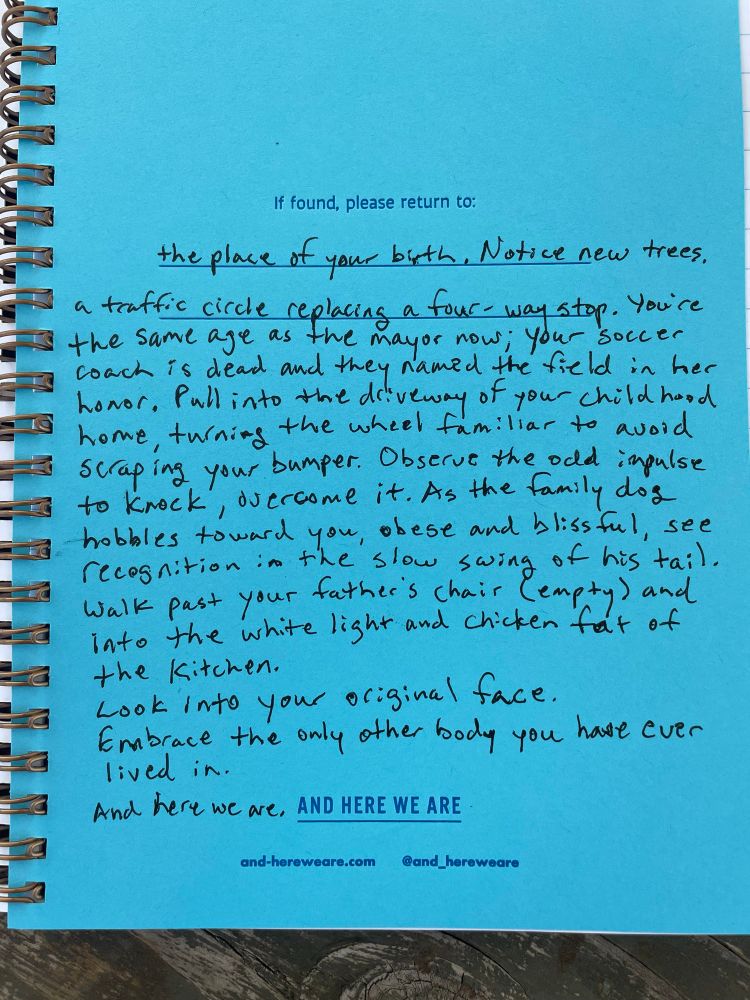 If found, please return to:
the place of your birth. Notice new trees,
a traffic circle replacing a four-way stop. You're
the same age as the mayor now; your soccer
coach is dead and they named the field in her
honor. Pull into the driveway of your childhood
home, turning the wheel familiar to avoid
scraping your bumper. Observe the odd impulse
to knock, overcome it. As the family dog
hobbles toward you, obese and blissful, see
recognition in the slow swing of his tail.
Walk past your father's chair (empty) and
into the white light and chicken fat of
the kitchen.
Look into your original face.
Embrace the only other body you have ever
lived in.
And here we are. AND HERE WE ARE
and-hereweare.com @and_hereweare